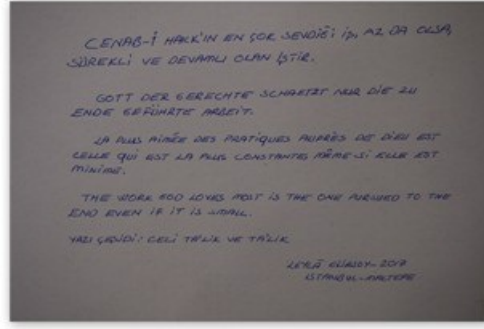 CENAB-İ HAKK'IN EN ÇOK SEVDİĞİ İŞ, AZ DA OLSA,
SÜREKLİ VE DEVAMLI OLAN İŞTİR.
GOTT DER GERECHTE SCHAETZT NUR DIE ZU
ENDE GEFÜHRTE ARBEIT.
LA PLUS AIMÉE DES PRATIQUES AUPRÈS DE DIEU EST
CELLE QUI EST LA PLUS CONSTANTES MÊME SI ELLE EST
MINIME.
THE WORK GOD LOVES MOST IS THE ONE PURSUED TO THE
END EVEN IF IT IS SMALL.
YAZI ÇEŞİDİ: CELİ TA'LİK VE TA'LİK
LEYLÂ 2017
İSTANBUL-MALTEPE